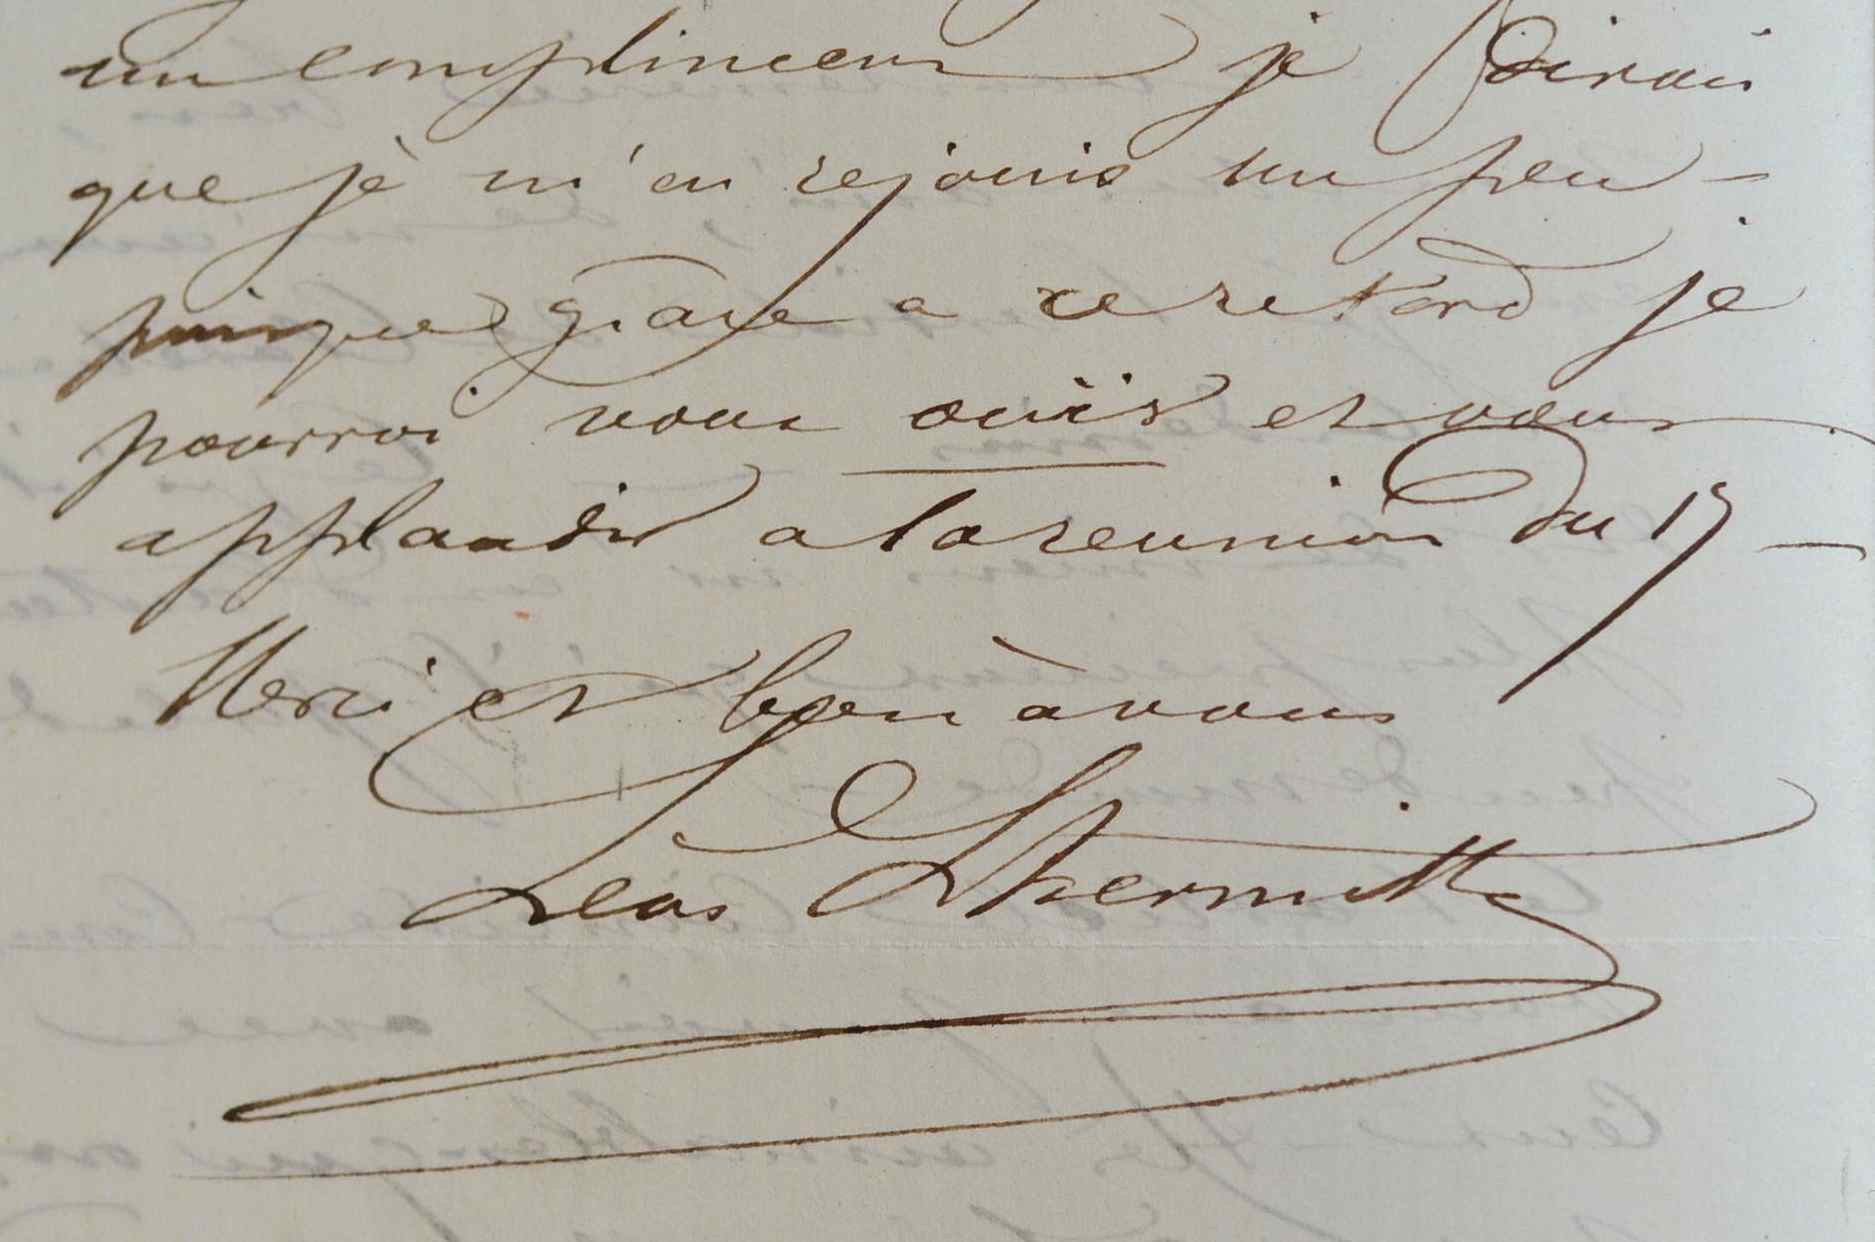 un compliment je dirais
que je m'en rejouis un peu —
puisque grace a ce retard je
pourrai vous ouïr et vous
applaudir a la reunion du 17 —
Merci et bien à vous
Léon Lhermitte